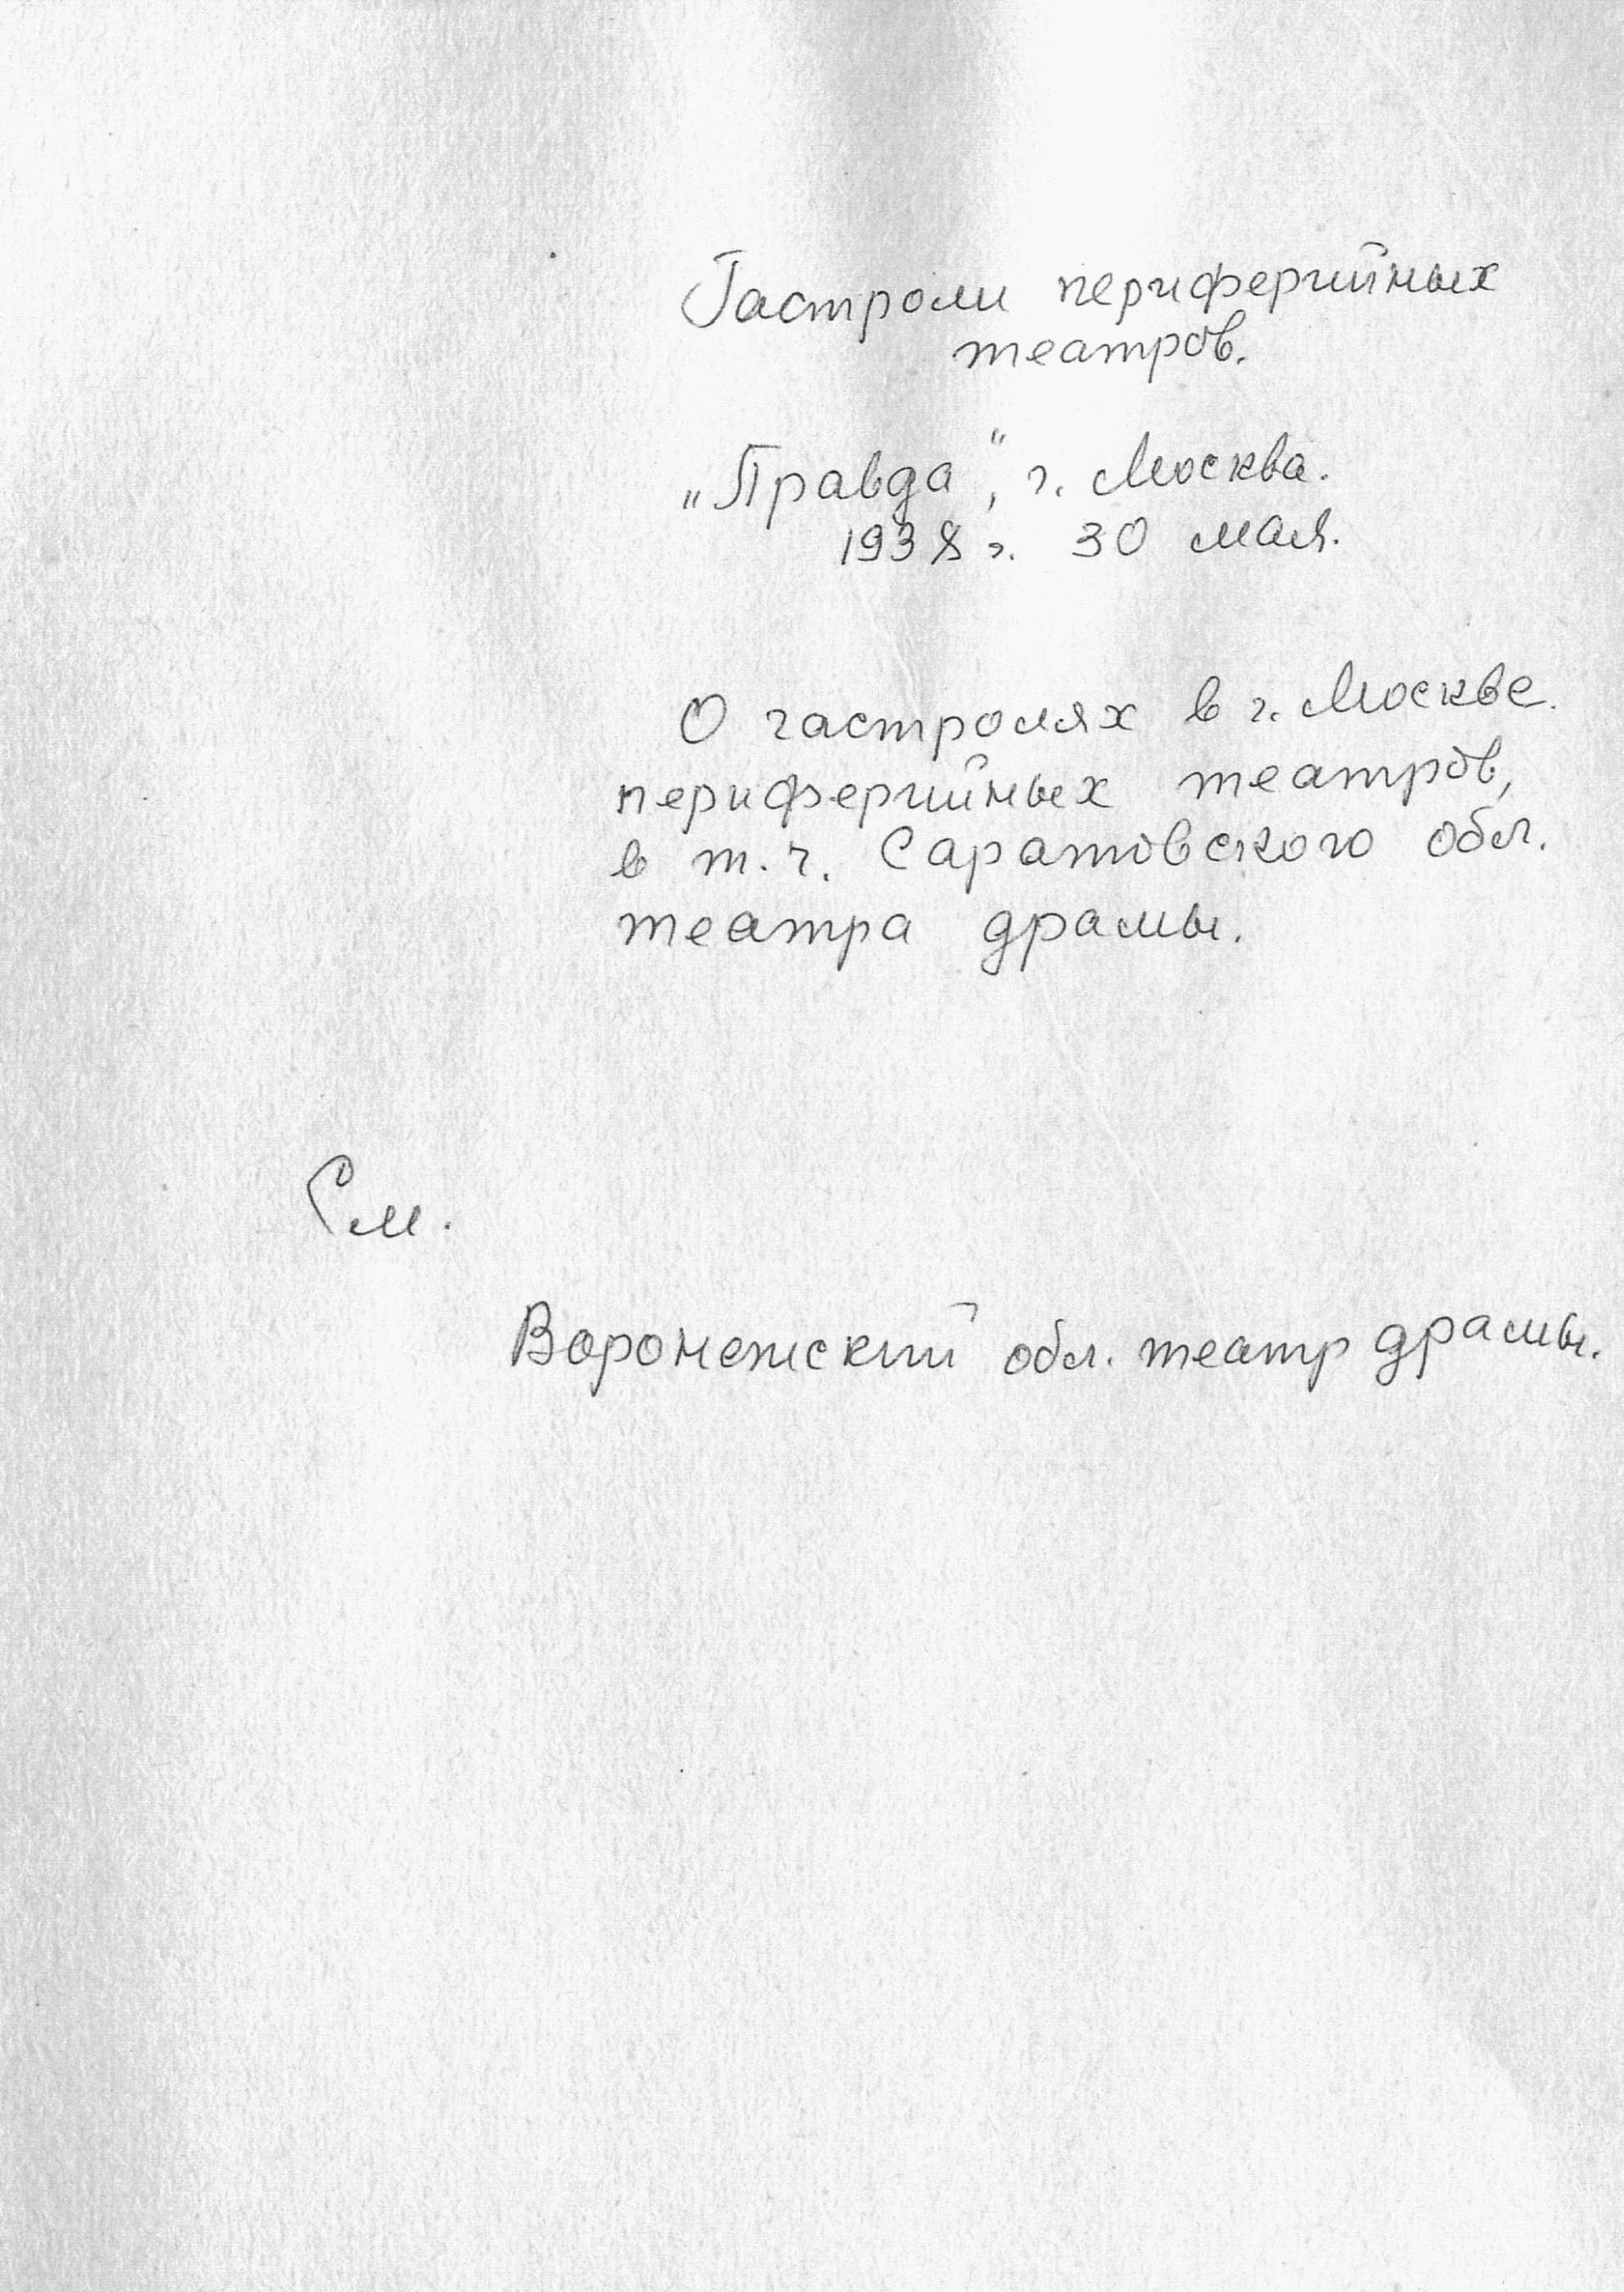 Гастроли периферийных
театров.
„Правда", г. Москва.
1938 г. 30 мая.
О гастролях в г. Москве
периферийных театров,
в т.ч. Саратовского обл.
театра драмы.
См.
Воронежский обл. театр драмы.